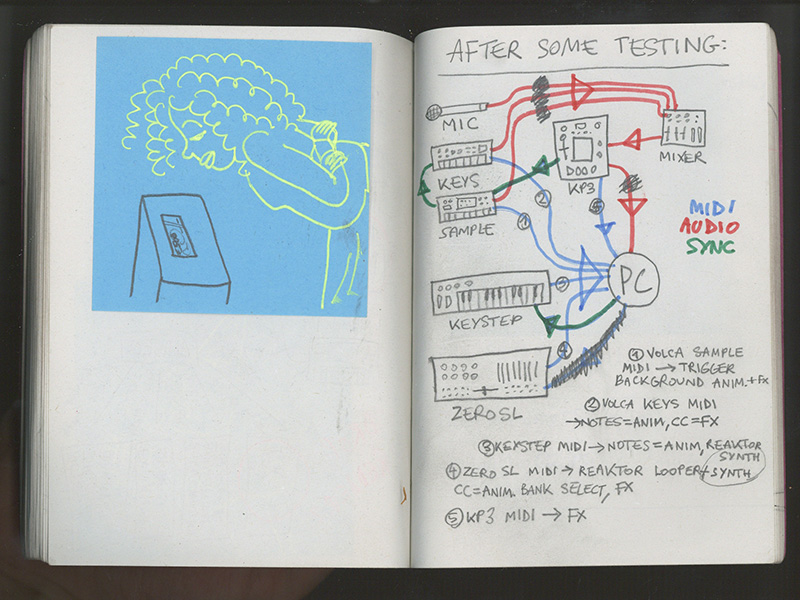 AFTER SOME TESTING:
MIC
MIXER
KEYS
KP3
SAMPLE
②
⑤
①
MIDI
AUDIO
SYNC
PC
③
KEYSTEP
④
ZERO SL
① VOLCA SAMPLE
MIDI → TRIGGER
BACKGROUND ANIM.+FX
② VOLCA KEYS MIDI
→NOTES=ANIM, CC=FX
③ KEYSTEP MIDI→NOTES=ANIM, REAKTOR
SYNTH
④ ZERO SL MIDI→ REAKTOR LOOPER+SYNTH
CC=ANIM. BANK SELECT, FX
⑤ KP3 MIDI → FX